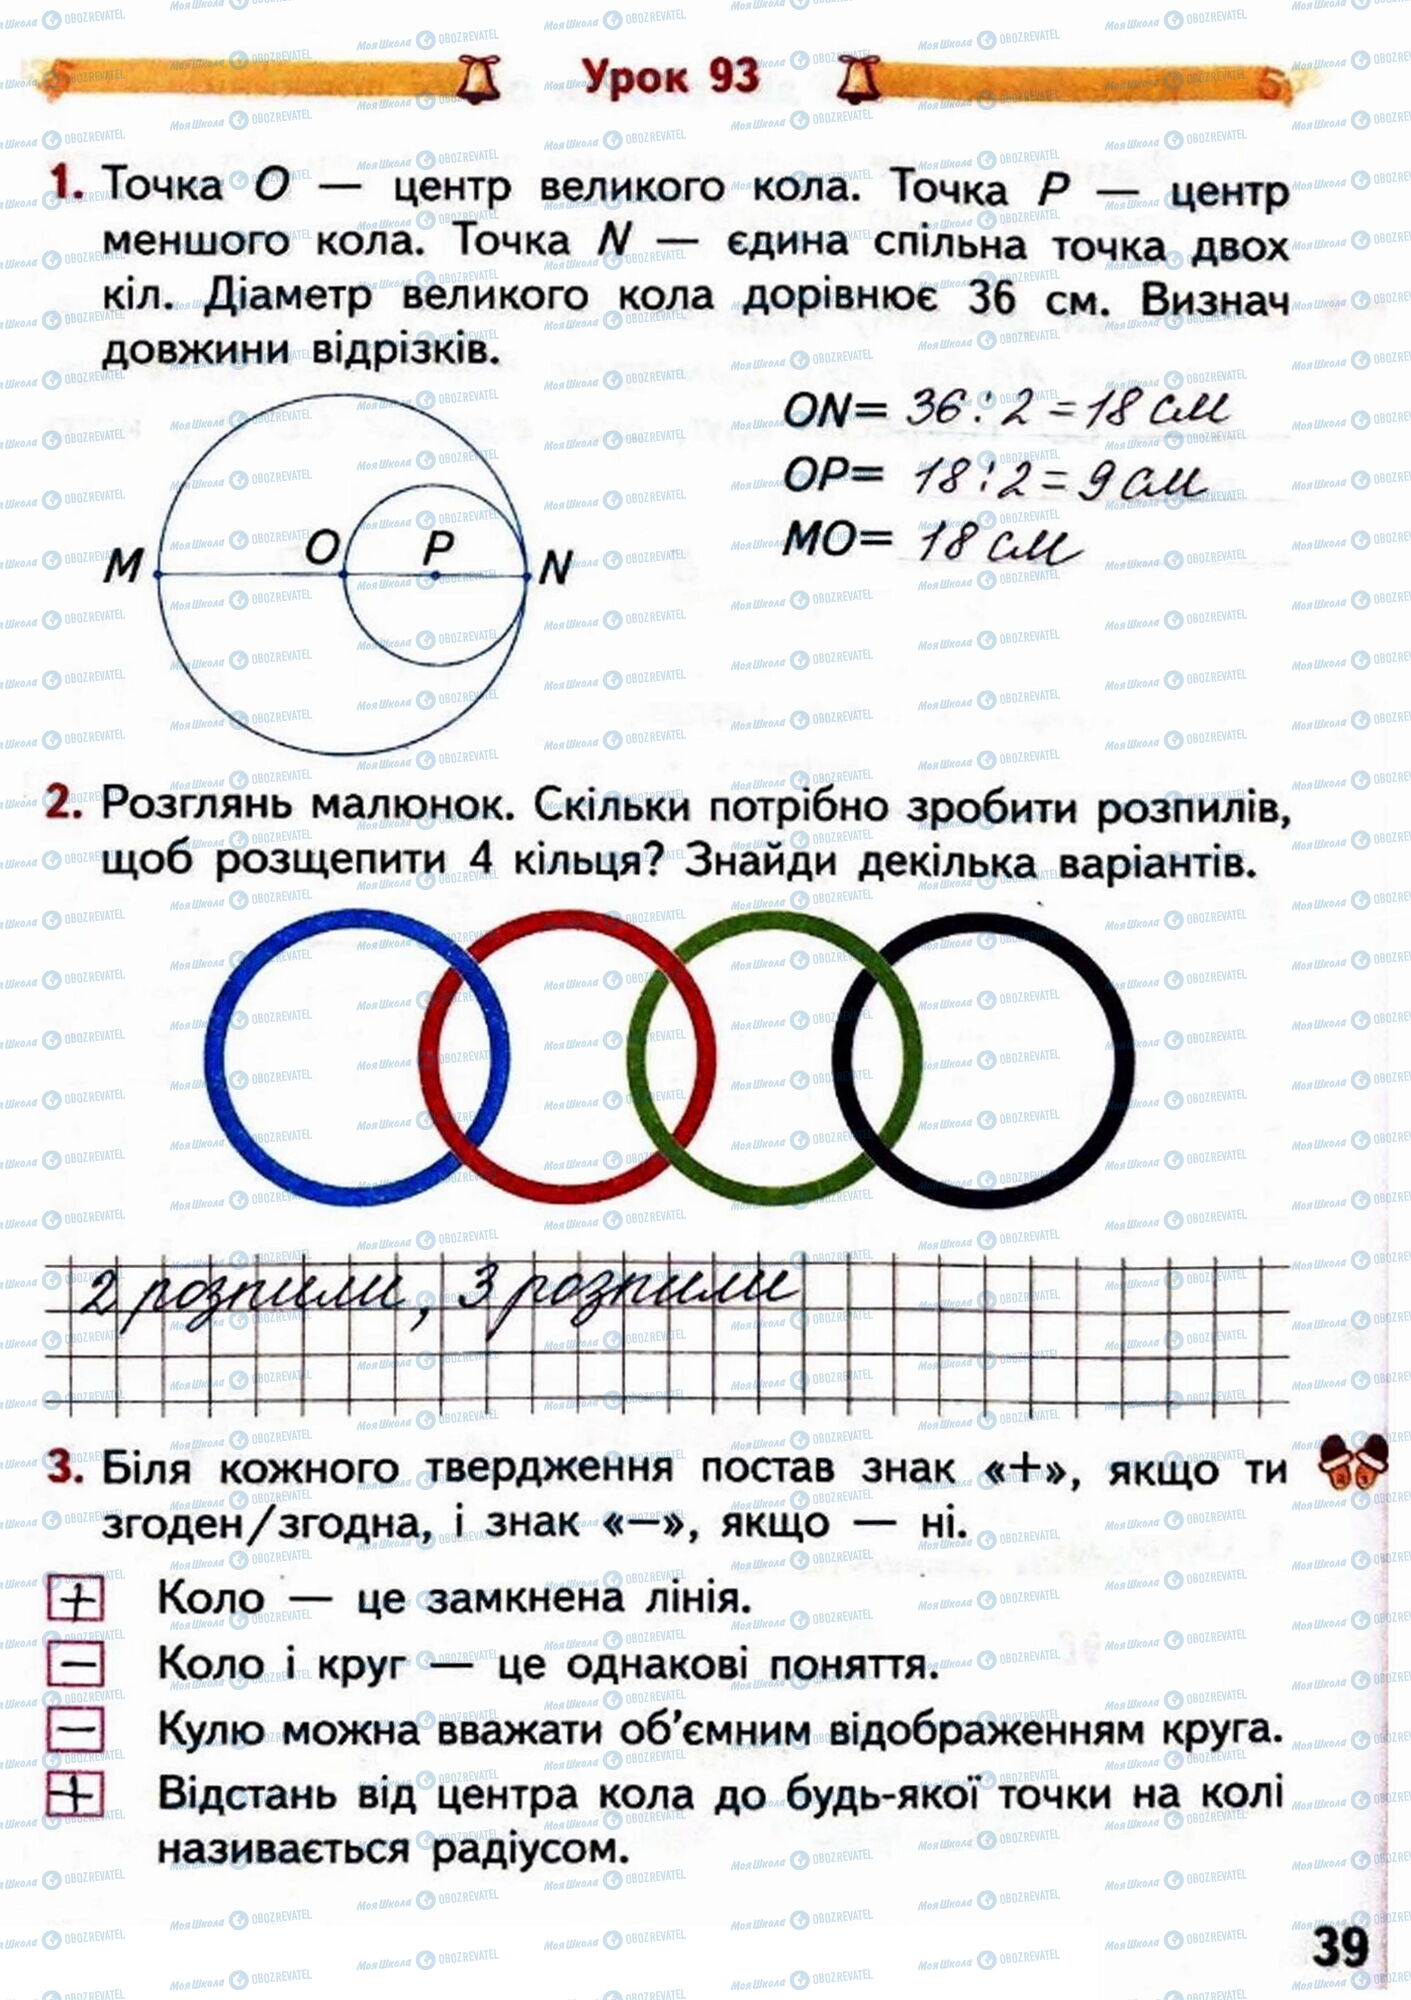 Урок 93
1. Точка O — центр великого кола. Точка P — центр
меншого кола. Точка N — єдина спільна точка двох
кіл. Діаметр великого кола дорівнює 36 см. Визнач
довжини відрізків.
ON= 36:2=18 см
OP= 18:2=9 см
MO= 18 см
M O P N
2. Розглянь малюнок. Скільки потрібно зробити розпилів,
щоб розщепити 4 кільця? Знайди декілька варіантів.
2 розпили, 3 розпили
3. Біля кожного твердження постав знак «+», якщо ти
згоден/згодна, і знак «—», якщо — ні.
+ Коло — це замкнена лінія.
— Коло і круг — це однакові поняття.
— Кулю можна вважати об'ємним відображенням круга.
+ Відстань від центра кола до будь-якої точки на колі
називається радіусом.
39
МояШкола OBOZREVATEL